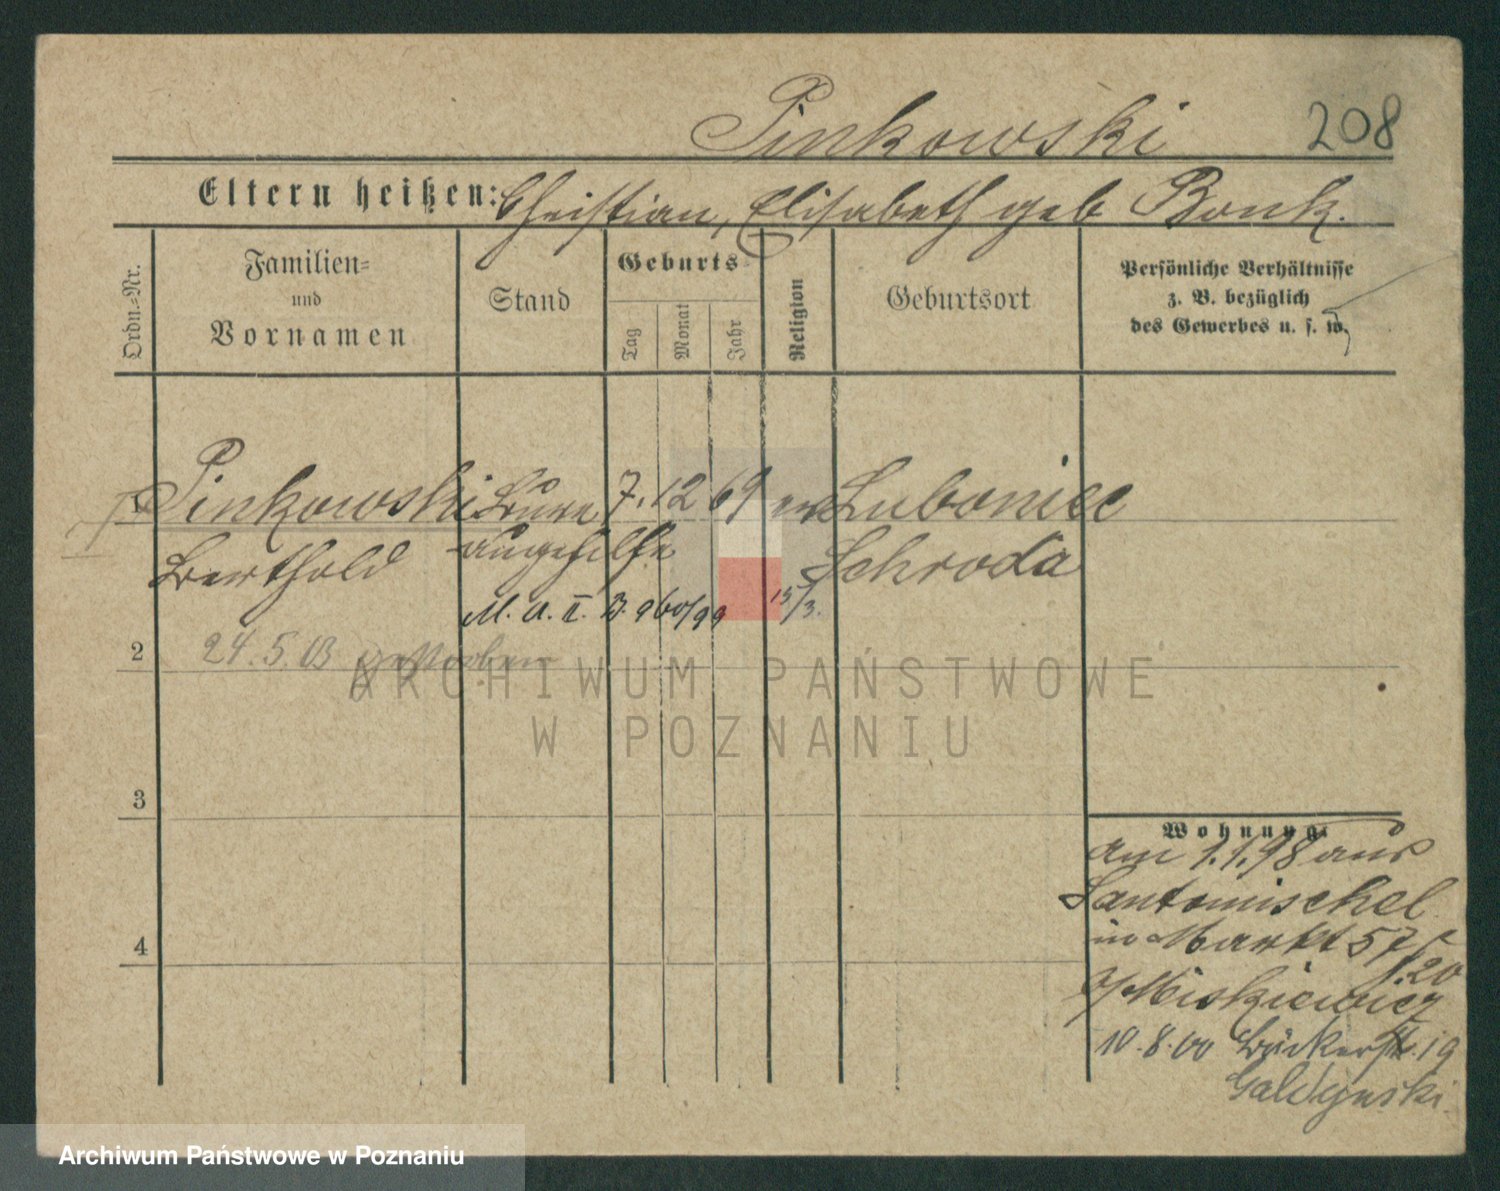 Pinkowski
208
Eltern heißen: Christian, Elisabeth geb Bonk.
Ordn.-Nr.
Familien-
und
Vornamen
Stand
Geburts
Tag
Monat
Jahr
Religion
Geburtsort
Persönliche Verhältnisse
z. B. bezüglich
des Gewerbes u. s. w.
1 Pinkowski 7. 12 69 Luboniec
Berthold gehilfe Schroda
M. A. II. B. 960/99 15/3.
2 24.5.03 gestorben
ARCHIWUM PAŃSTWOWE
W POZNANIU
3
4
Wohnung.
am 1.1.98 aus
Santomischel
in Markt 57
b/ Miskiewicz
10.8.00 Bäckerstr. 19
Archiwum Państwowe w Poznaniu